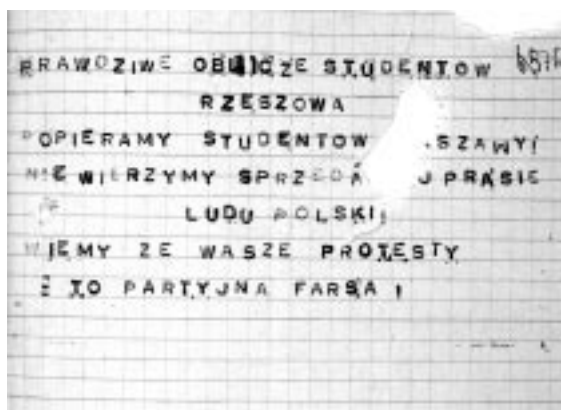 PRAWDZIWE OBLICZE STUDENTOW
RZESZOWA
POPIERAMY STUDENTOW SZAWY!
NIE WIERZYMY SPRZEDA J PRASIE
LUDU POLSKI!
WIEMY ZE WASZE PROTESTY
TO PARTYJNA FARSA !